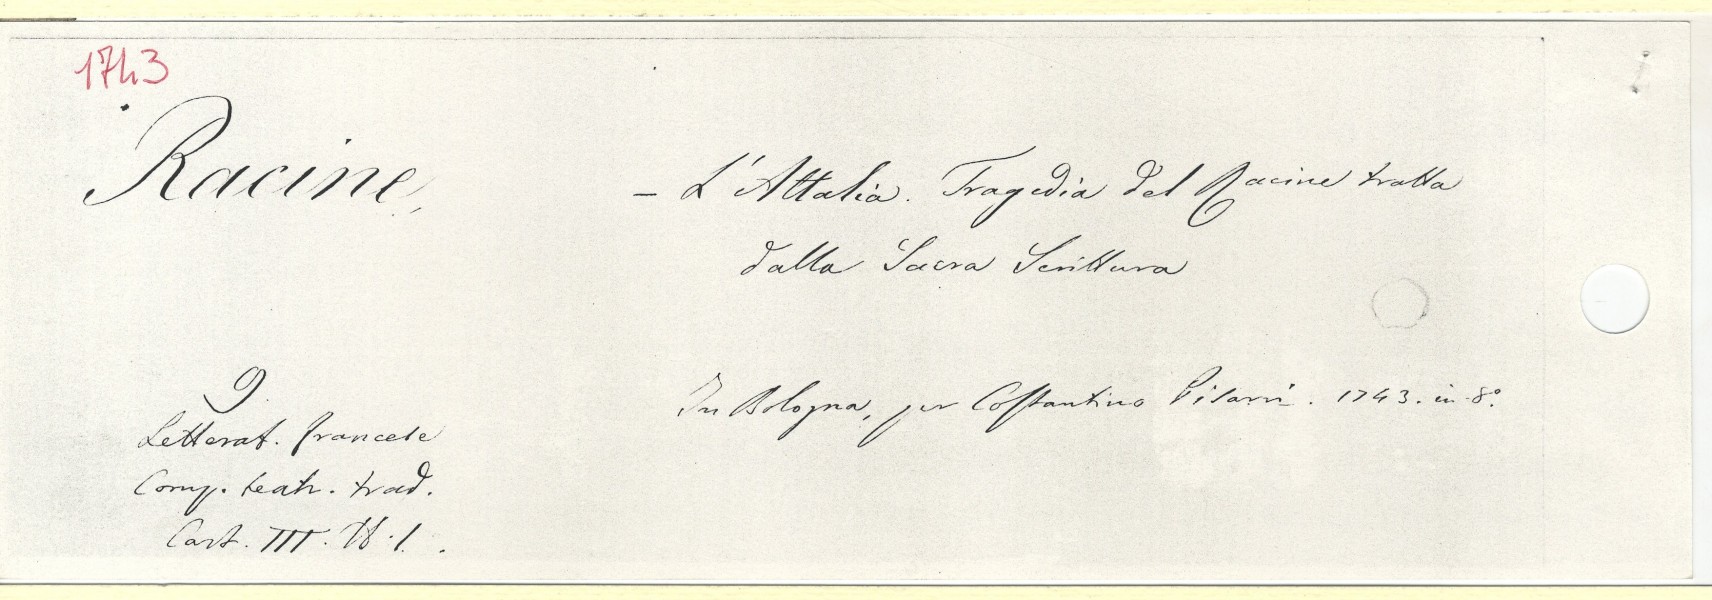 1743
Racine,
– L'Attalia. Tragedia del Racine tratta
dalla Sacra Scrittura
In Bologna, per Costantino Pisarri. 1743. in-8°.
9.
Letterat. francese
Comp. teatr. trad.
Cart. III. N. 1.